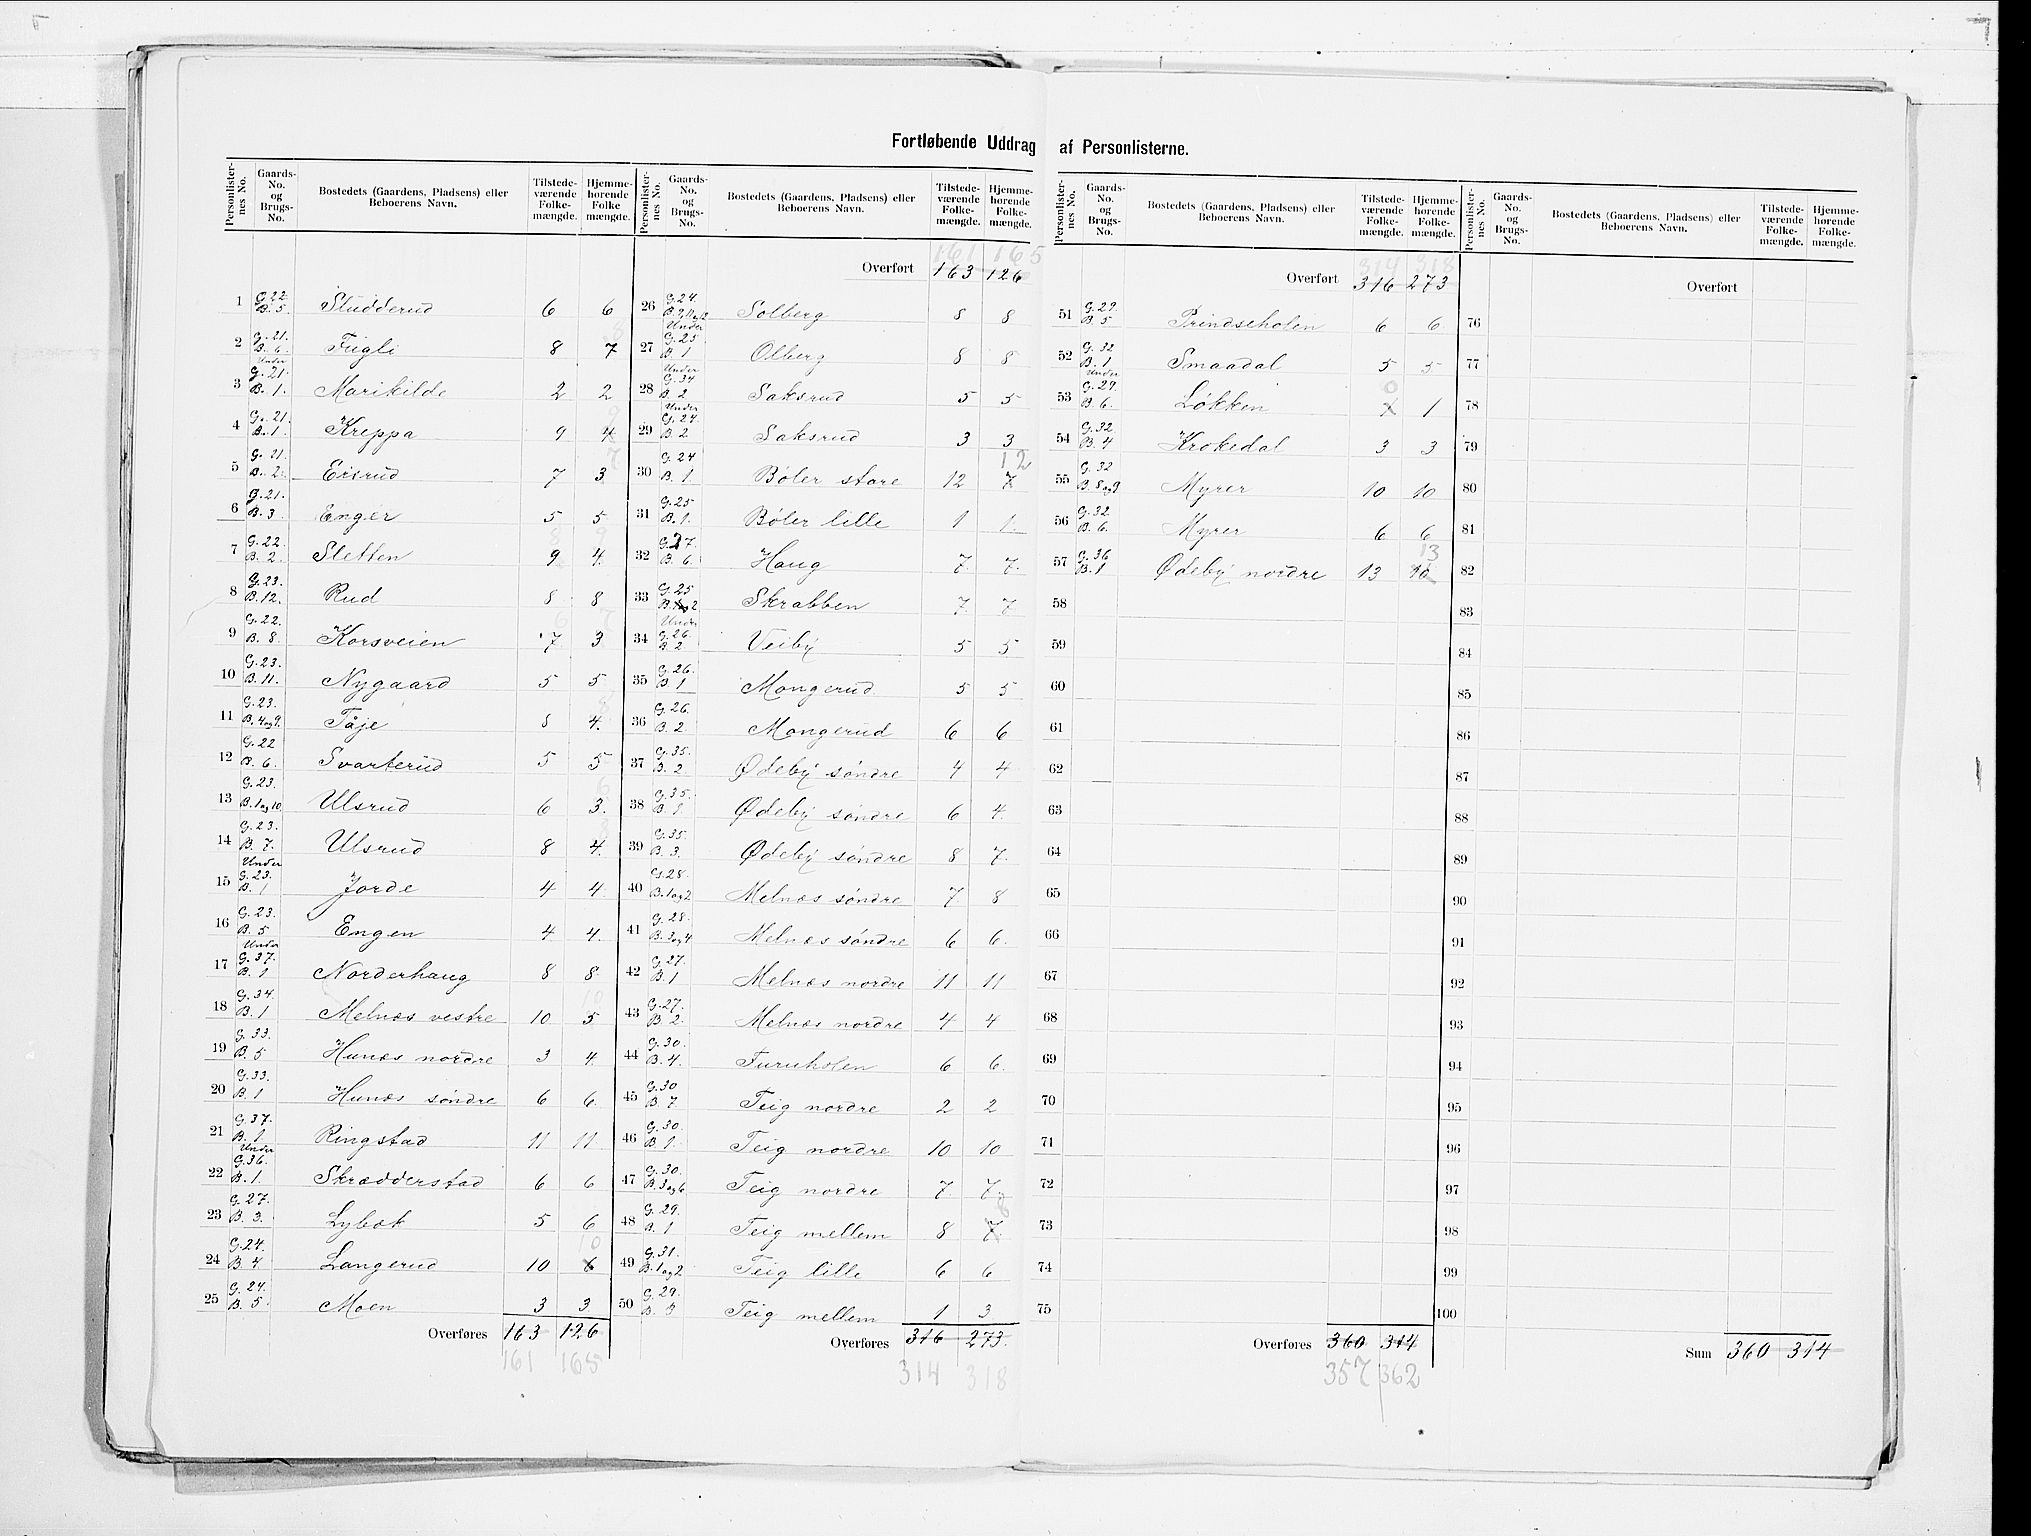 Fortløbende Uddrag af Personlisterne.
Personlister-nes No. | Gaards-No. og Brugs-No. | Bostedets (Gaardens, Pladsens) eller Beboerens Navn. | Tilstede-værende Folke-mængde. | Hjemme-hørende Folke mængde.
1 G. 22. B. 5. Sludderud 6 6
2 G. 21. B. 6. Fugli 8 7
3 Under G. 21. B. 1. Marikilde 2 2
4 G. 21. B. 1. Kreppa 9 4
5 G. 21. B. 2. Eisrud 7 3
6 G. 21. B. 3. Enger 5 5
7 G. 22. B. 2. Sletten 9 4.
8 G. 23. B. 12. Rud 8 8
9 G. 22. B. 8. Korsveien 7 3
10 G. 23. B. 11. Nygaard 5 5
11 G. 23. B. 4 og 9. Tåje 8 4.
12 G. 22 B. 6. Svarterud 5 5
13 G. 23. B. 1 og 10. Ulsrud 6 3.
14 G. 23. B. 7. Ulsrud 8 4.
15 Under G. 23. B. 1 Jorde 4 4.
16 G. 23. B. 5 Engen 4 4.
17 Under G. 37. B. 1 Norderhaug 8 8
18 G. 34. B. 1 Melnæs vestre 10 5 10
19 G. 33. B. 5 Hunæs nordre 3 4.
20 G. 33. B. 1 Hunæs söndre 6 6.
21 G. 37. B. 1. Ringstad 11 11
22 Under G. 36. B. 1. Skrædderstad 6 6
23 G. 27. B. 3. Lybæk 5 6
24 G. 24. B. 4 Langerud 10 6 10
25 G. 24. B. 5. Moen 3 3.
Overføres 163 126
161 165
Personlister-nes No. | Gaards-No. og Brugs-No. | Bostedets (Gaardens, Pladsens) eller Beboerens Navn. | Tilstede-værende Folke-mængde. | Hjemme-hørende Folke-mængde.
161 165
Overført 163 126
26 G. 24. B. 9, 11 og 12 Solberg 8 8
27 Under G. 25 B. 1 Olberg 8 8
28 Under G. 34 B. 2 Saksrud 5 5
29 Under G. 24. B. 2 Saksrud 3 3
30 G. 24 B. 1. Böler store 12 7 12
31 G. 25 B. 1. Böler lille 1 1.
32 G. 27. B. 6. Haug 7. 7.
33 G. 25 Skrabben 7. 7
34 Under G. 26. B. 2 Veiby 5 5
35 G. 26. B. 1 Mangerud 5 5
36 G. 26. B. 2. Mangerud 6 6
37 G. 35. B. 2. Ødeby söndre 4 4
38 G. 35. B. 1. Ødeby söndre 6 4.
39 G. 35. B. 3. Ødeby söndre 8 7.
40 G. 28. B. 1 og 2 Melnæs söndre 7 8
41 G. 28. B. 3 og 4 Melnæs söndre 6 6.
42 G. 27. B. 1 Melnæs nordre 11 11
43 G. 27. B. 2. Melnæs nordre 4 4
44 G. 30. B. 4. Furuholen 6 6.
45 G. 30 B. 7. Teig nordre 2 2
46 G. 30. B. 1. Teig nordre 10 10
47 G. 30. B. 3 og 6 Teig nordre 7 7
48 G. 29. B. 1 Teig mellem 8 7 8
49 G. 31. B. 1 og 2 Teig lille 6 6
50 G. 29. B. 3 Teig mellem 1 3
Overføres 316 273.
314 318
Personlister-nes No. | Gaards-No. og Brugs-No. | Bostedets (Gaardens, Pladsens) eller Beboerens Navn. | Tilstede-værende Folke-mængde. | Hjemme-hørende Folke-mængde.
314 318
Overført 316 273
51 G. 29. B. 5 Prindseholen 6 6.
52 G. 32 B. 1 Smaadal 5 5
53 Under G. 29. B. 6. Løkken 0 1 1
54 G. 32. B. 4 Krokedal 3 3
55 G. 32 B. 8 og 9 Myrer 10 10
56 G. 32. B. 6. Myrer 6 6
57 G. 36 B. 1 Ødeby nordre 13 10 13
58
59
60
61
62
63
64
65
66
67
68
69
70
71
72
73
74
75
Overføres 360 314
357 362
Personlister-nes No. | Gaards-No. og Brugs-No. | Bostedets (Gaardens, Pladsens) eller Beboerens Navn. | Tilstede-værende Folke-mængde. | Hjemme-hørende Folke-mængde.
Overført
76
77
78
79
80
81
82
83
84
85
86
87
88
89
90
91
92
93
94
95
96
97
98
99
100
Sum 360 314